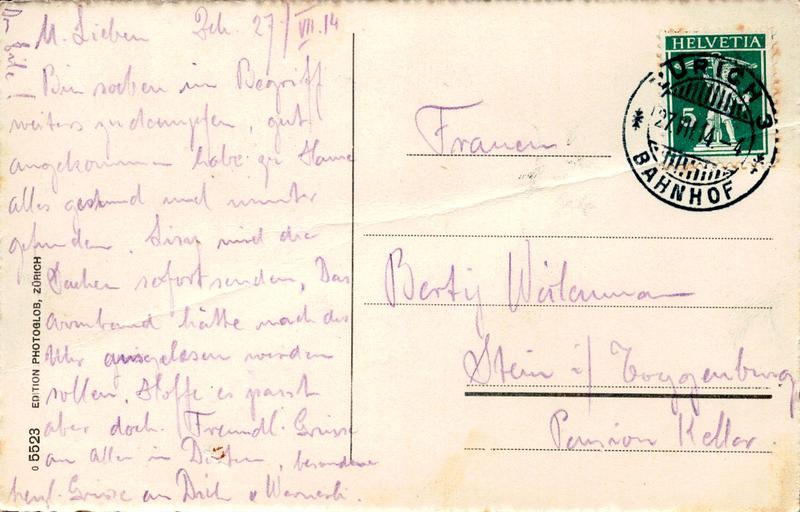 M. Lieben Zch. 27/VII.14
Bin soeben im Begriff
weiters zu dampfen, gut
angekommen habe zu Hause
alles gesund und munter
gefunden. Lisy wird die
Sachen sofort senden, Das
Armband hätte nach der
Uhr ausgelesen werden
sollen, Hoffe es passt
aber doch. Freundl. Grüsse
an Alle in Dorten, besonders
herzl. Grüsse an Dich u Wernerli.
Frauen
Berty
Stein i/Toggenburg
Pension Keller.
HELVETIA
5
ZÜRICH 3
27.VII.14. 4
BAHNHOF
EDITION PHOTOGLOB, ZÜRICH
05523